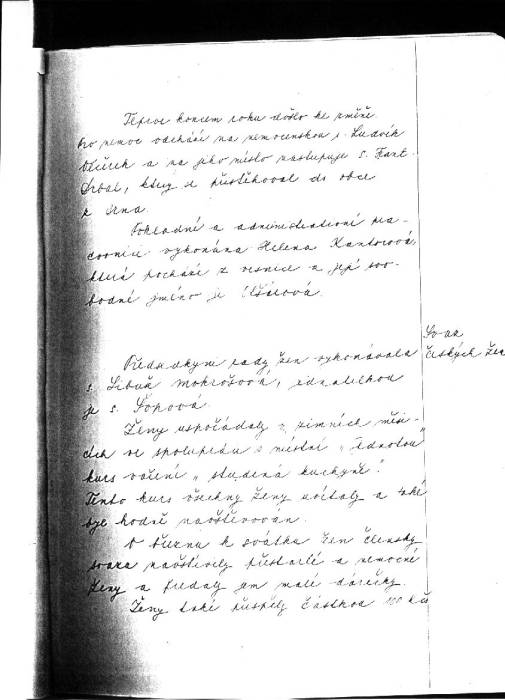 Teprve koncem roku došlo ke změně.
Pro nemoc odchází na nemocenskou s. Ludvík
Vlček a na jeho místo nastupuje s. Frant.
Srbal, který se přistěhoval do obce
z Brna.
Pokladní a administrativní pra-
covnici vykonána Helena Kantorová,
která pochází z vesnice a její svo-
bodné jméno je
Předsedkyni rady žen vykonávala
s. Libuše Mokrošová, jednatelkou
je s. Šopová
Svaz
českých žen
Ženy uspořádaly v zimních měsí-
cích ve spolupráci s místní „Jednotou"
kurs vaření „studená kuchyně".
Tento kurs všechny ženy uvítaly a také
byl hodně navštěvován.
V březnu k svátku žen členky
svazu navštívily přestárlé a nemocné
ženy a předaly jim malé dárečky.
Ženy také přispěly částkou 100 Kčs